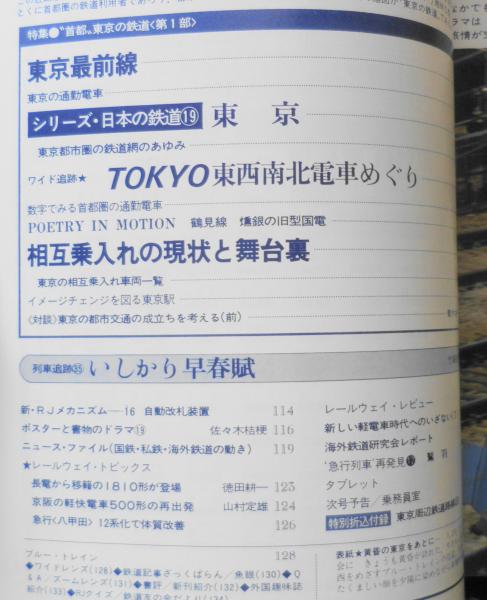 特集●〝首都〟東京の鉄道〈第1部〉
東京最前線
東京の通勤電車
シリーズ・日本の鉄道⑲ 東京
東京都市圏の鉄道網のあゆみ
ワイド追跡★ TOKYO東西南北電車めぐり
数字でみる首都圏の通勤電車
POETRY IN MOTION 鶴見線 燻銀の旧型国電
相互乗入れの現状と舞台裏
東京の相互乗入れ車両一覧
イメージチェンジを図る東京駅
〈対談〉東京の都市交通の成立ちを考える(前)
列車追跡㉟ いしかり早春賦
新・RJメカニズム—16 自動改札装置 114
ポスターと書物のドラマ⑲ 佐々木桔梗 116
ニュース・ファイル(国鉄・私鉄・海外鉄道の動き) 119
★レールウェイ・トピックス
長電から移籍の1810形が登場 徳田耕一 123
京阪の軽快電車500形の再出発 山村定雄 124
急行〈八甲田〉12系化で体質改善 126
レールウェイ・レビュー
新しい軽電車時代へのいざない
海外鉄道研究会レポート
〝急行列車〟再発見⑰
タブレット
次号予告／乗務員室
特別折込付録 東京周辺鉄道路線
ブルー・トレイン 128
◆ワイドレンズ(128)◆鉄道記事ざっくばらん／魚眼(130)◆Q
&A／ズームレンズ(131)◆書評／新刊紹介(132)◆外国趣味誌
紹介(133)◆RJクイズ／鉄道友の会だより(134)
表紙★黄昏の東京をあとに